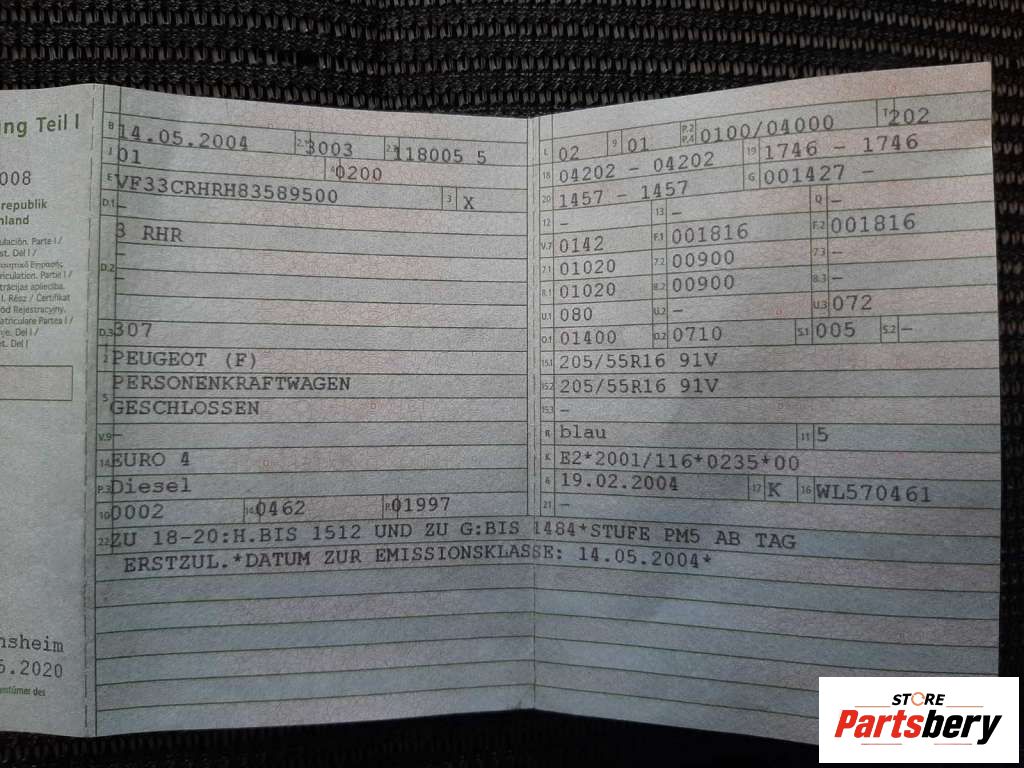 ung Teil I
008
republik
nland
ulación. Parte I /
st. Del I /
riculation. Parte I /
trācijas apliecība.
I. Rész / Certifikat
ód Rejestracyjny.
atriculare Partea I /
nje. Del I /
et. Del I
nsheim
5.2020
entümer des
B 14.05.2004 2.1 3003 2.2 118005 5
J 01 4 0200
E VF33CRHRH83589500 3 X
D.1 –
3 RHR
–
D.2 –
–
D.3 307
2 PEUGEOT (F)
PERSONENKRAFTWAGEN
5 GESCHLOSSEN
V.9 –
14 EURO 4
P.3 Diesel
10 0002 14.1 0462 P.1 01997
L 02 9 01 P.2 P.4 0100/04000 T 202
18 04202 – 04202 19 1746 – 1746
20 1457 – 1457 G 001427 –
12 – 13 – Q –
V.7 0142 F.1 001816 F.2 001816
7.1 01020 7.2 00900 7.3 –
8.1 01020 8.2 00900 8.3 –
U.1 080 U.2 – U.3 072
O.1 01400 O.2 0710 S.1 005 S.2 –
15.1 205/55R16 91V
15.2 205/55R16 91V
15.3 –
R blau 11 5
K E2*2001/116*0235*00
6 19.02.2004 17 K 16 WL570461
21 –
22 ZU 18-20:H.BIS 1512 UND ZU G:BIS 1484*STUFE PM5 AB TAG
ERSTZUL.*DATUM ZUR EMISSIONSKLASSE: 14.05.2004*
STORE
Partsbery